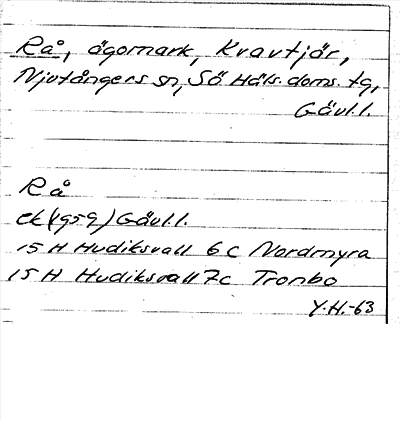 Rå, ägomark, Kravtjär,
Njutångers sn, Sö Häls. doms. tg,
Gävl.l.
Rå
Ek (1959) Gävl.l.
15 H Hudiksvall 6 c Nordmyra
15 H Hudiksvall 7c Trombo
Y.H.-63